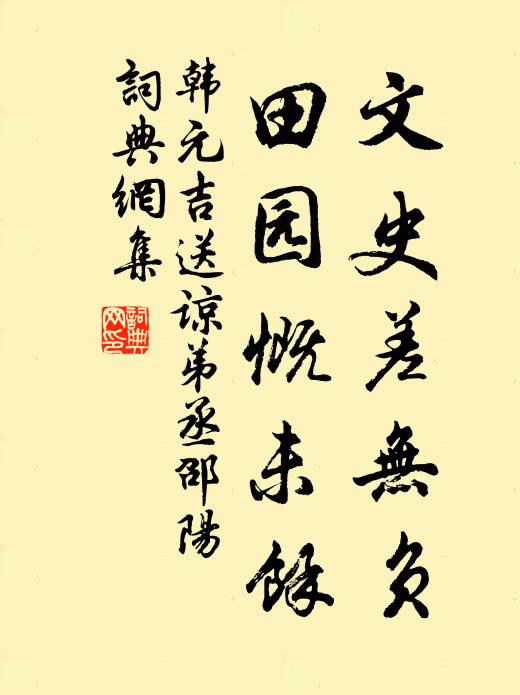 文史差無負
田园慨未餘
韩元吉送谅弟丞邵陽
詞典網集
詞典网印